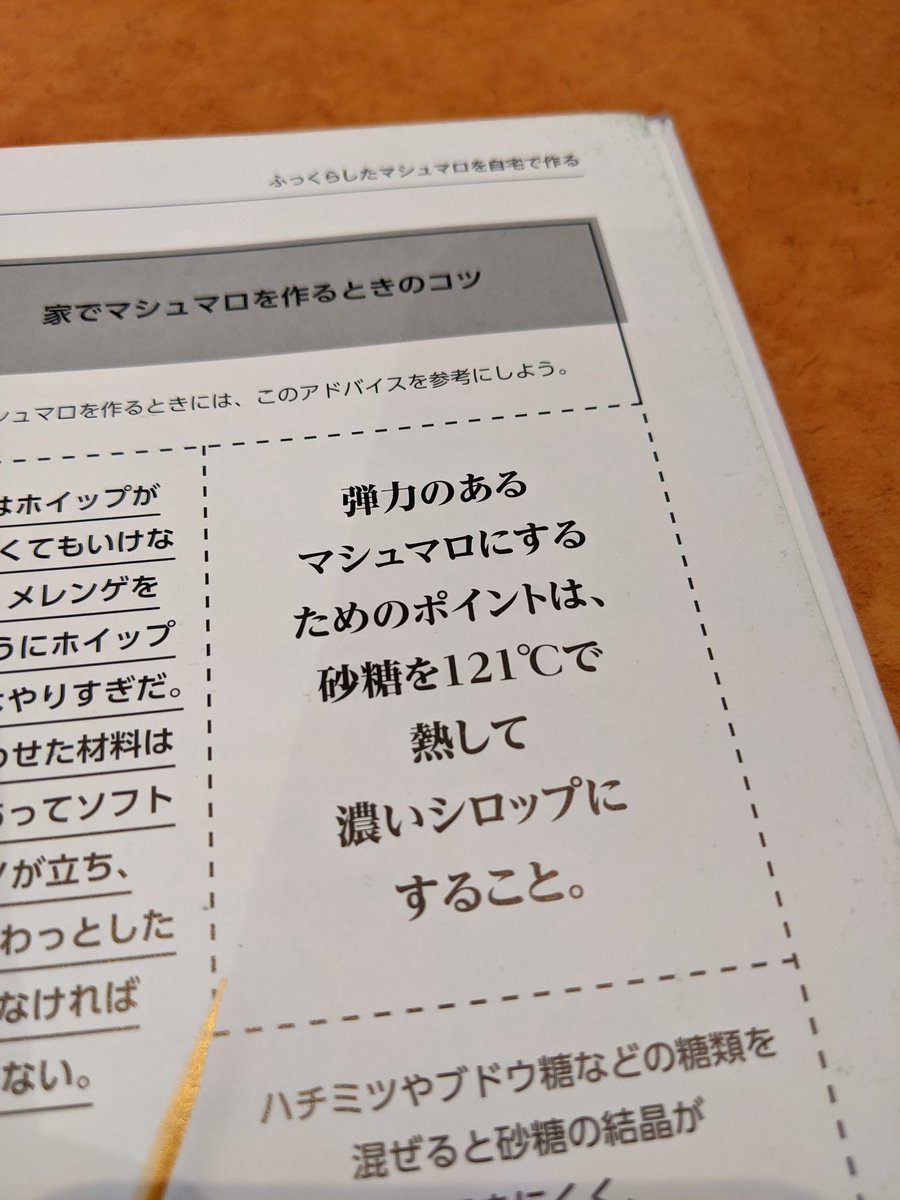 ふっくらしたマシュマロを自宅で作る
家でマシュマロを作るときのコツ
シュマロを作るときには、このアドバイスを参考にしよう。
はホイップが
くてもいけな
メレンゲを
うにホイップ
やりすぎだ。
わせた材料は
ってソフト
が立ち、
わっとした
なければ
ない。
弾力のある
マシュマロにする
ためのポイントは、
砂糖を121℃で
熱して
濃いシロップに
すること。
ハチミツやブドウ糖などの糖類を
混ぜると砂糖の結晶が
にくく、